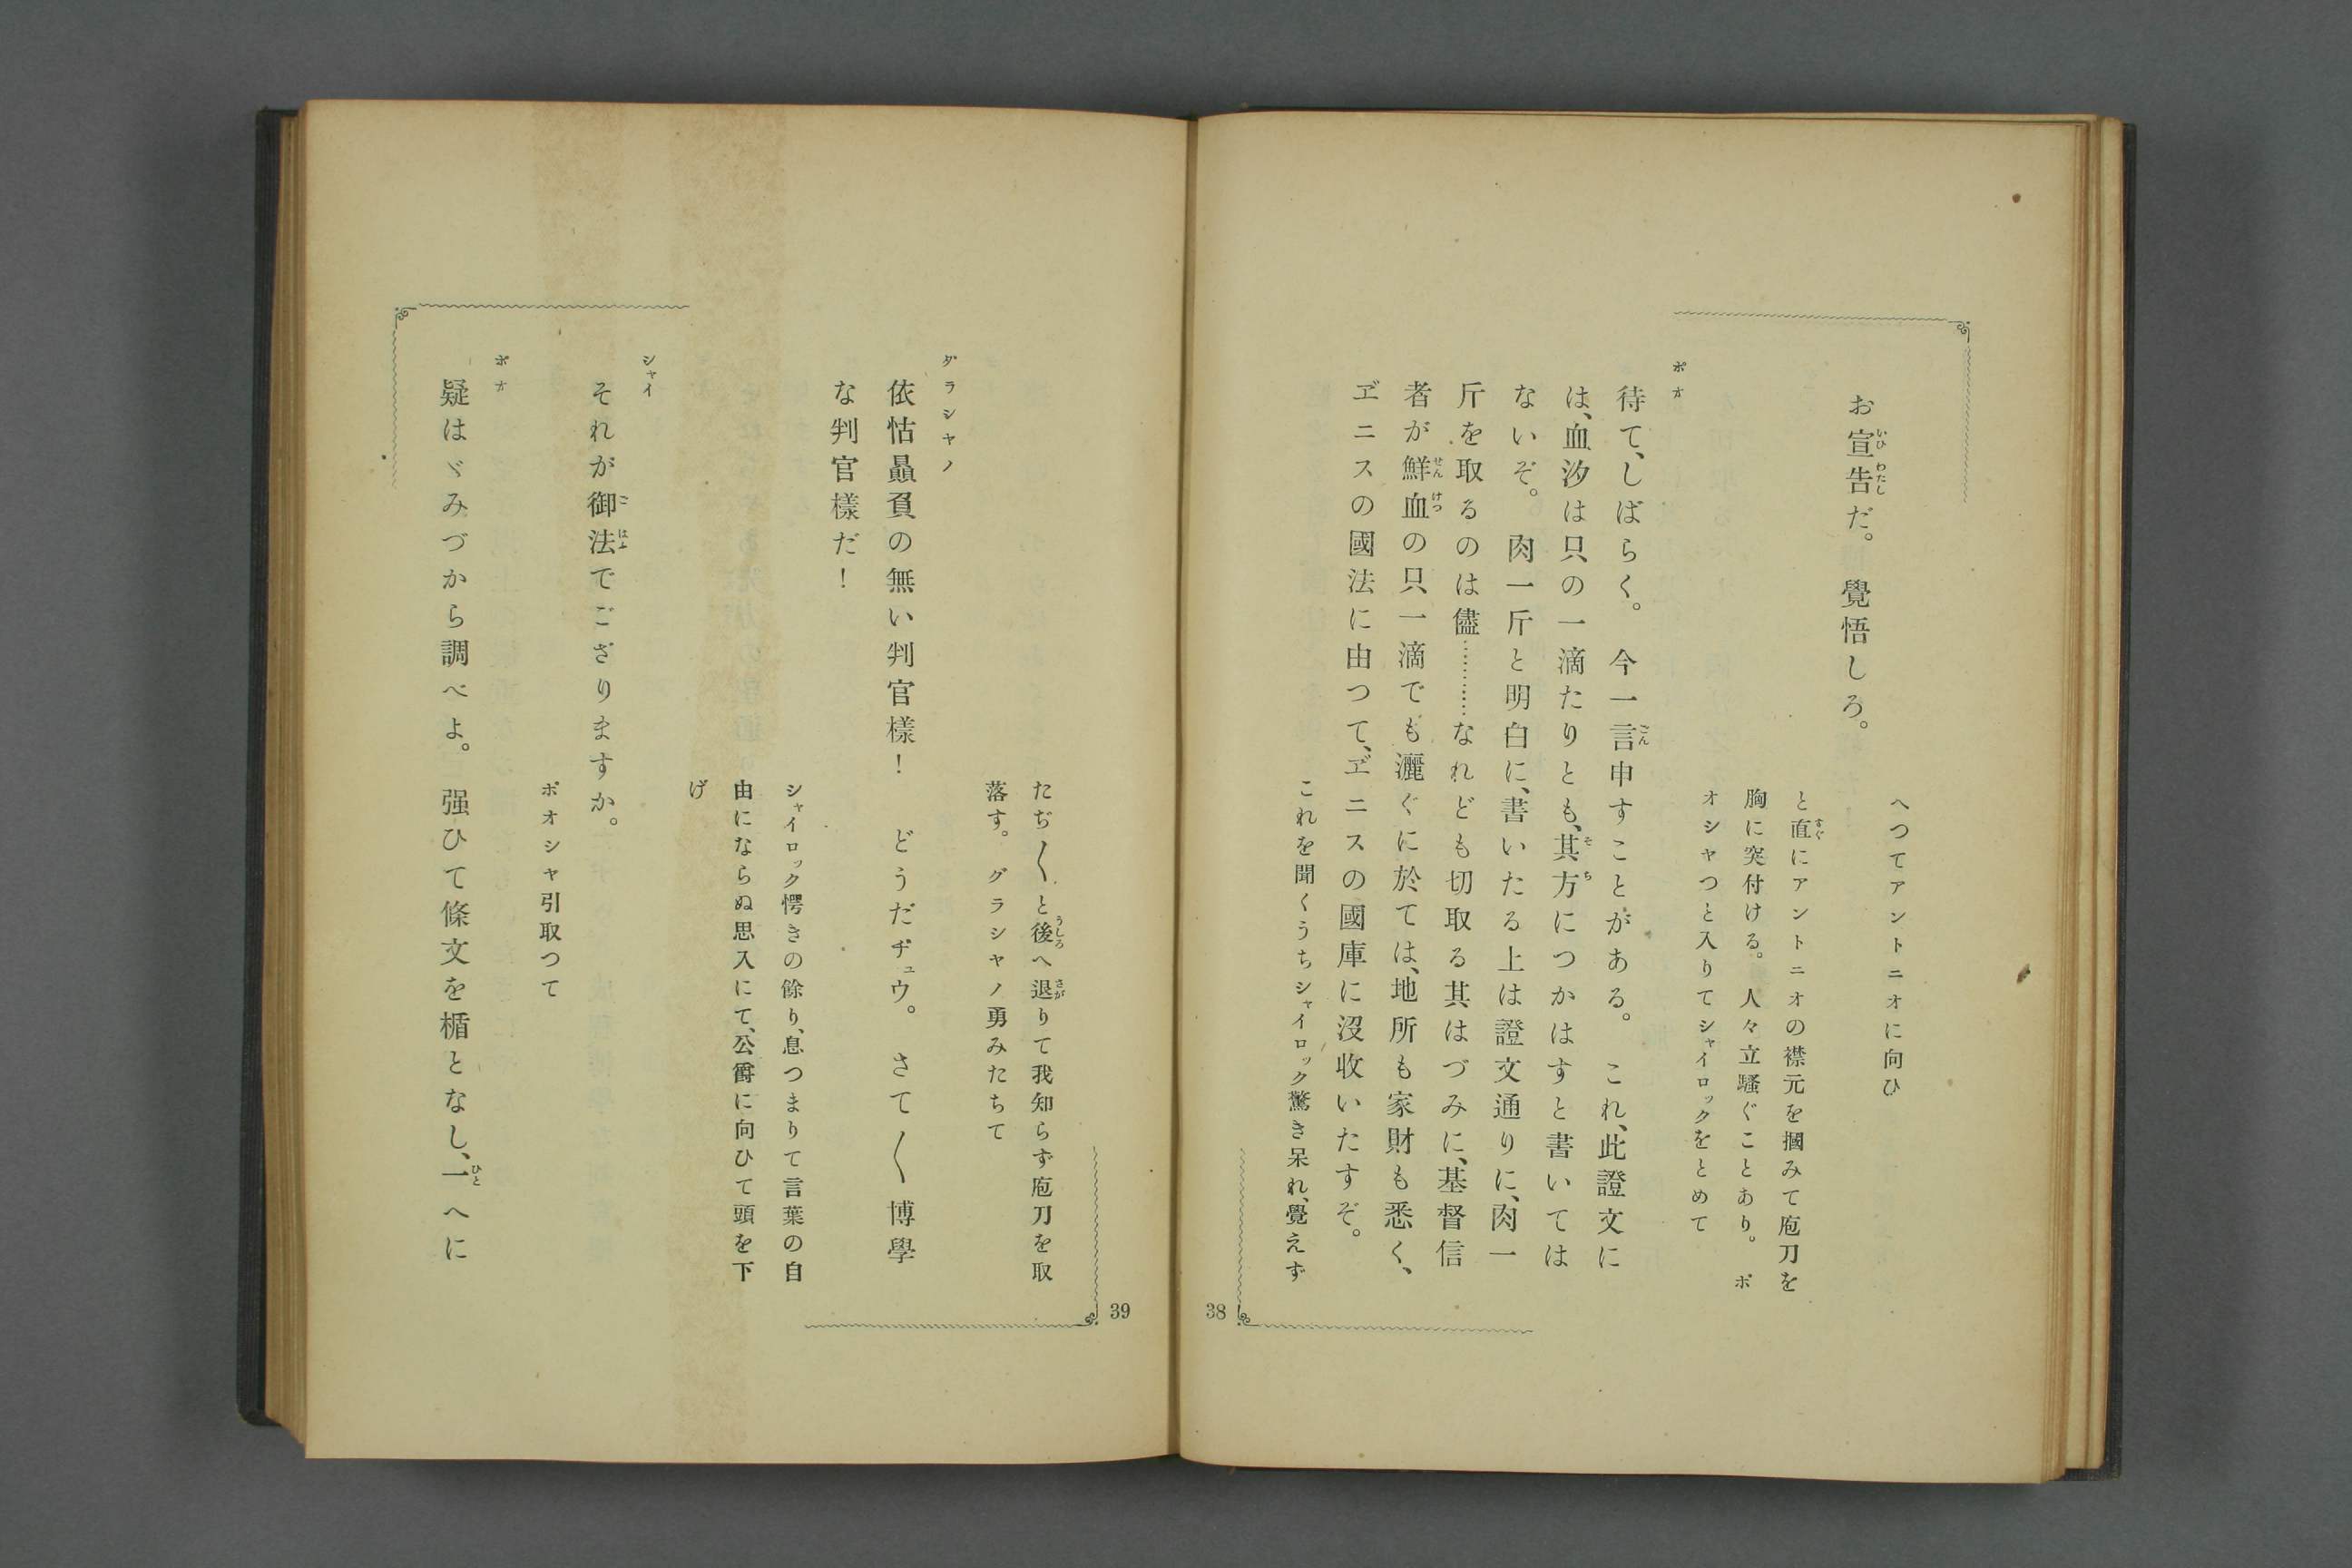 へつてアントニオに向ひ
お宣告だ。　覺悟しろ。
と直にアントニオの襟元を摑みて庖刀を
胸に突付ける。　人々立騷ぐことあり。　ポ
オシヤつと入りてシャイロックをとめて
ポオ
待て、しばらく。　今一言申すことがある。　これ、此證文に
は、血汐は只の一滴たりとも、其方につかはすと書いては
ないぞ。　肉一斤と明白に、書いたる上は證文通りに、肉一
斤を取るのは儘…………なれども切取る其はづみに、基督信
者が鮮血の只一滴でも灑ぐに於ては、地所も家財も悉く、
ヹニスの國法に由つて、ヹニスの國庫に沒收いたすぞ。
これを聞くうちシャイロック驚き呆れ、覺えず
38
たぢ〱と後へ退りて我知らず庖刀を取
落す。　グラシヤノ勇みたちて
グラシヤノ
依怙贔負の無い判官樣！　どうだヂュウ。　さて〱博學
な判官樣だ！
シャイロック愕きの餘り、息つまりて言葉の自
由にならぬ思入にて、公爵に向ひて頭を下
げ
シャイ
それが御法でござりますか。
ポオシヤ引取つて
ポオ
疑はゞみづから調べよ。　强ひて條文を楯となし、一へに
39